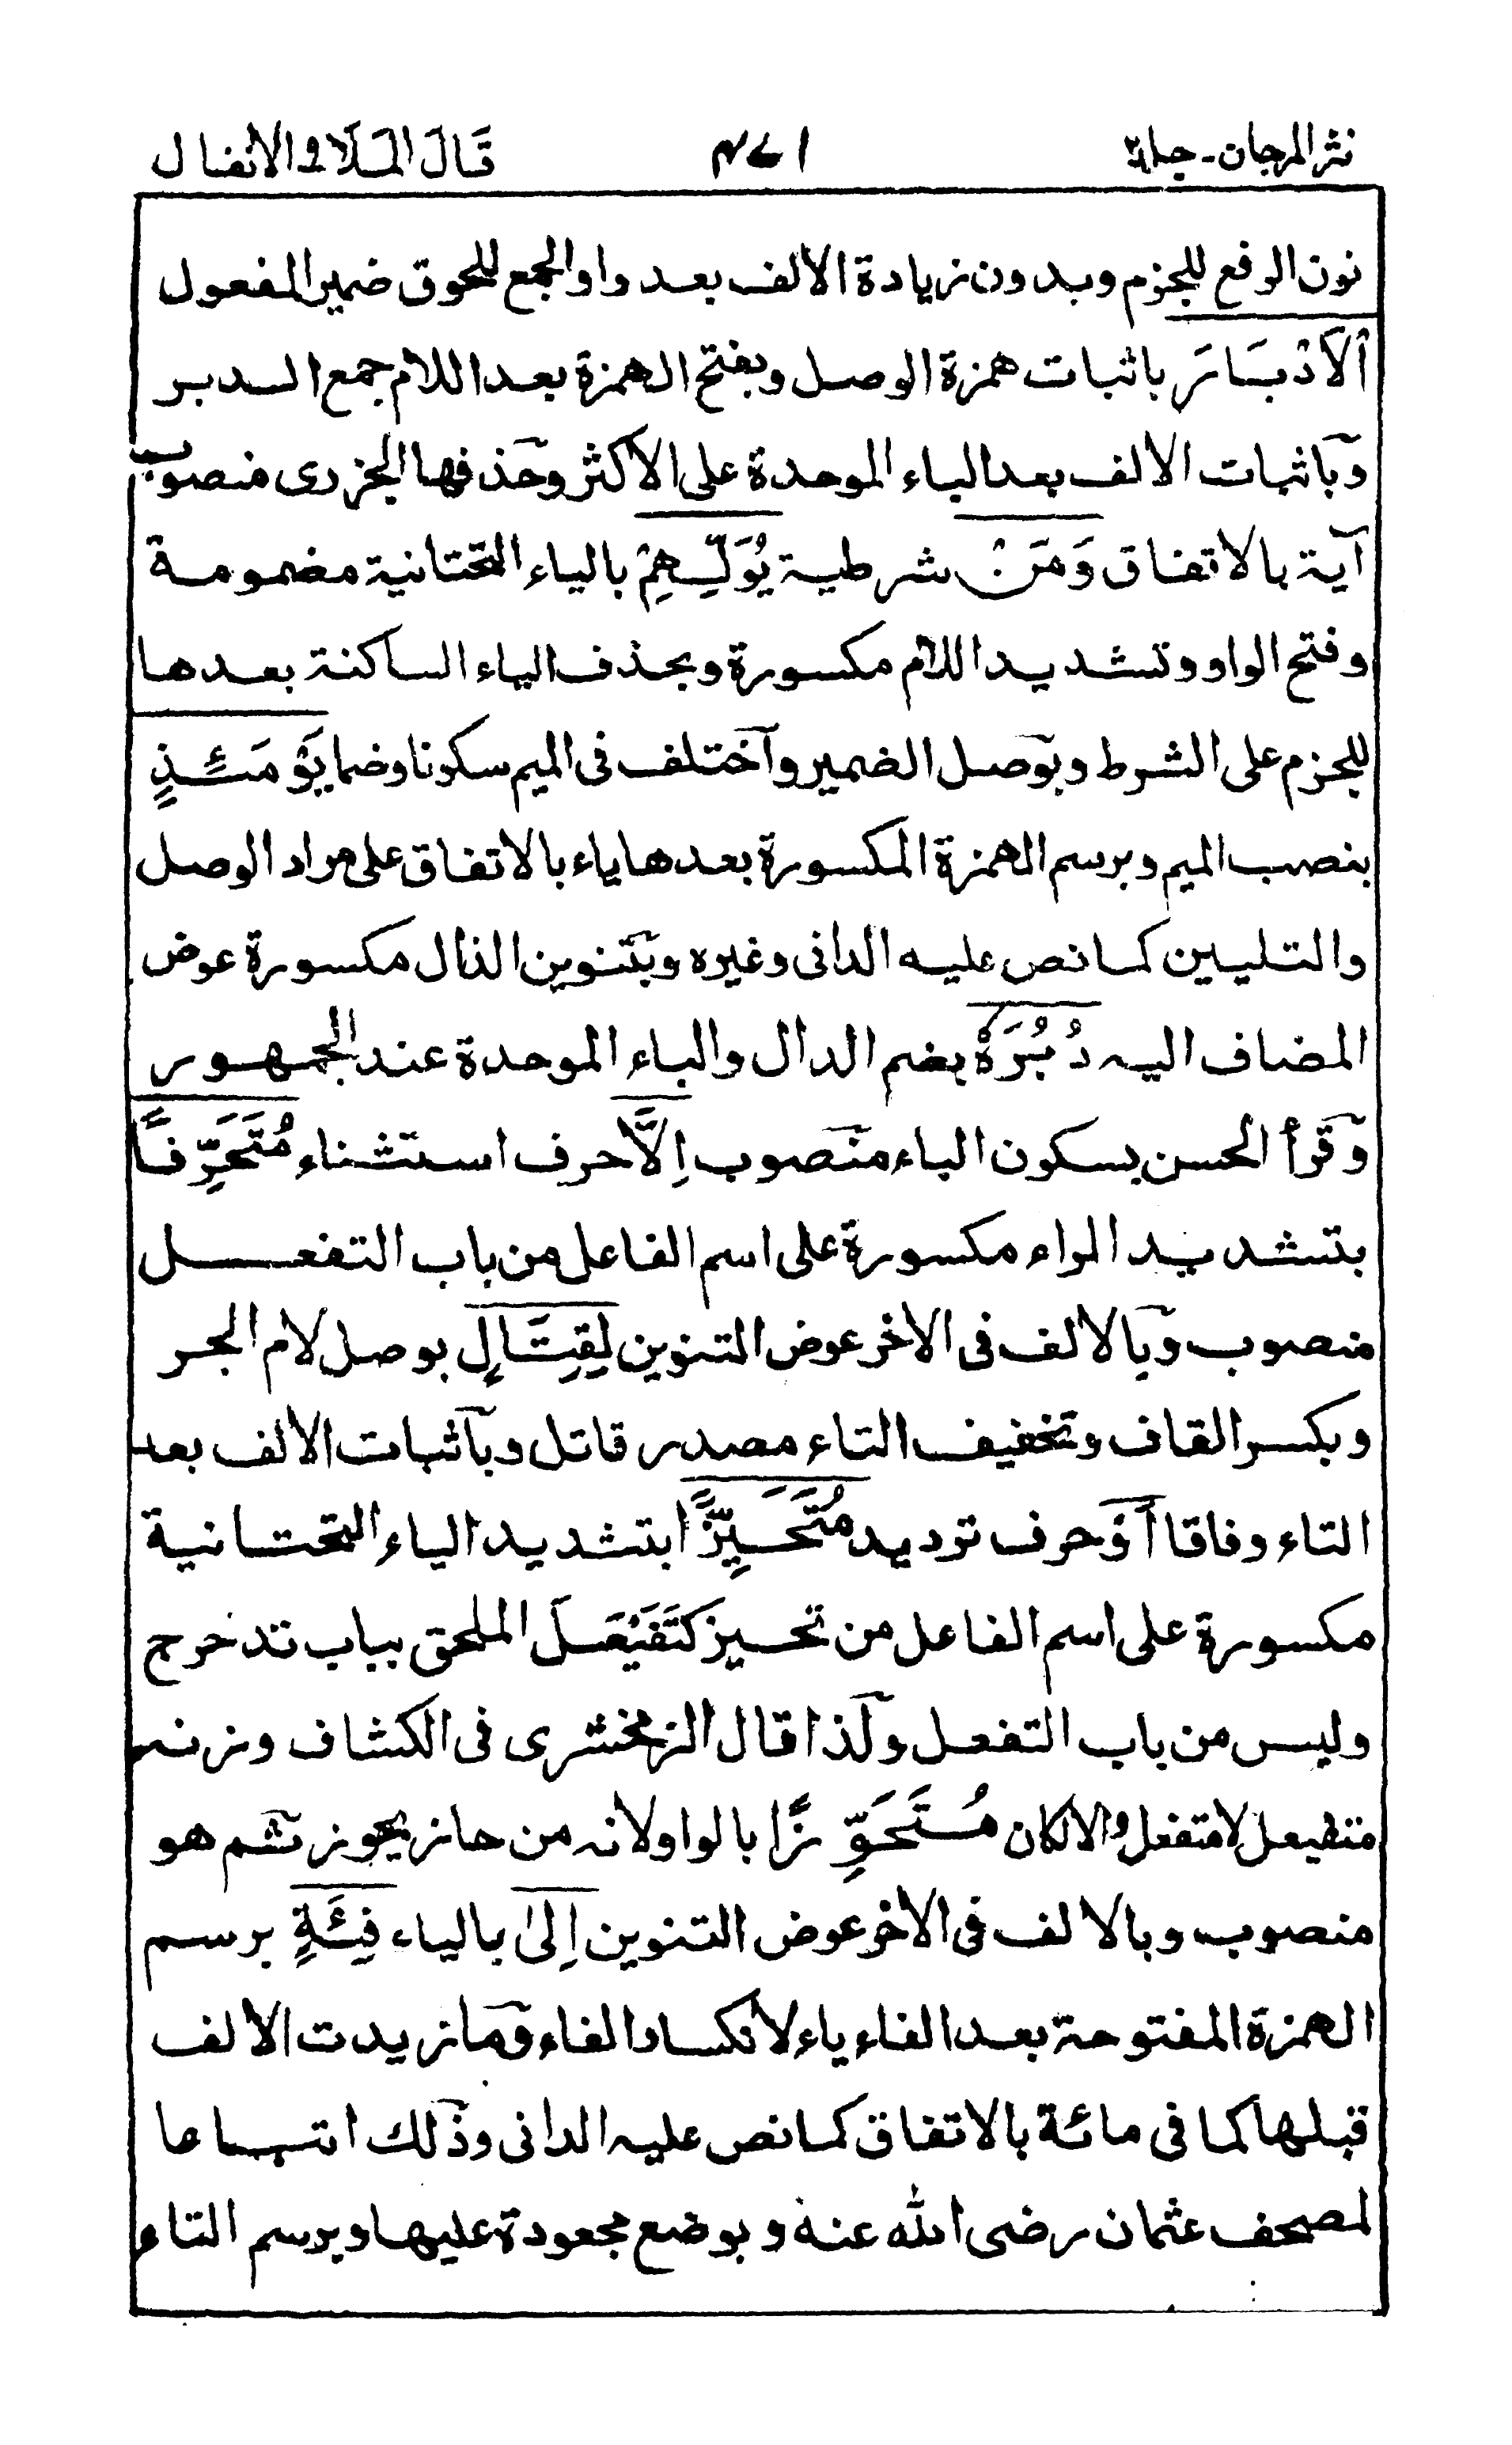 نثر المرجان - جلد٢
٤٧١
قَالَ الْمَلَأُ و الانفال
نون الرفع للجزم وبدون زيادة الالف بعد واو الجمع للحوق ضمير المفعول
اَلْاَدْبَارَ باثبات همزة الوصل وبفتح الهمزة بعد اللام جمع الدبر
وبآثبات الالف بعد الباء الموحدة على الاكثر وحذفها الجزرى منصوب
آية بالاتفاق وَمَنْ شرطية يُوَلِّهِمْ بالياء التحتانية مضمومة
وفتح الواو وتشديد اللام مكسورة وبحذف الياء الساكنة بعدها
للجزم على الشرط وبوصل الضمير وآختلف فى الميم سكونا وضما يَوْمَئِذٍ
بنصب الميم وبرسم الهمزة المكسورة بعدها ياء بالاتفاق على مراد الوصل
والتليين كما نص عليه الدانى وغيره وبتنوين الذال مكسورة عوض
المضاف اليه دُبُرَهٗ بضم الدال والباء الموحدة عند الجمهور
وقرأ الحسن بسكون الباء منصوب اِلَّا حرف استثناء مُتَحَرِّفًا
بتشديد الراء مكسورة على اسم الفاعل من باب التفعل
منصوب وبالالف فى الاخر عوض التنوين لِقِتَالٍ بوصل لام الجر
وبكسر القاف وتخفيف التاء مصدر قاتل وبآثبات الالف بعد
التاء وفاقا اَوْ حرف ترديد مُتَحَيِّزًا بتشديد الياء التحتانية
مكسورة على اسم الفاعل من تحيز كَتَفَيْعَلَ الملحق بباب تدحرج
وليس من باب التفعل ولذا قال الزمخشرى فى الكشاف وزنه
متفيعل لا متفعل والا لكان مُتَحَوِّزًا بالواو لانه من حاز يحوز ثم هو
منصوب وبالالف فى الاخر عوض التنوين اِلىٰ بالياء فِئَةٍ برسم
الهمزة المفتوحة بعد الفاء ياء لانكسار الفاء وما زيدت الالف
قبلها كما فى مائة بالاتفاق كما نص عليه الدانى وذلك اتباعا
لمصحف عثمان رضى الله عنه و بوضع مجعودة عليها وبرسم التاء